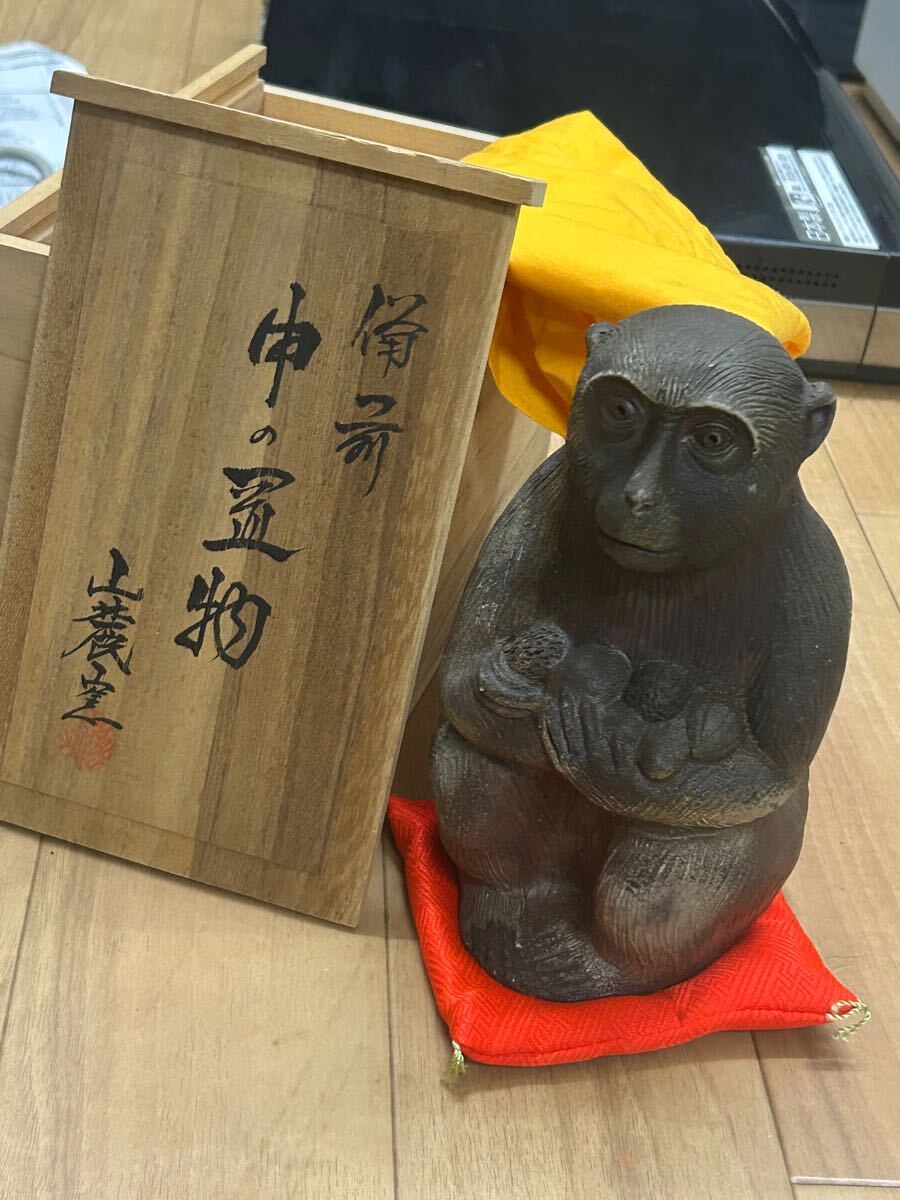 備前
申の置物
山麓窯